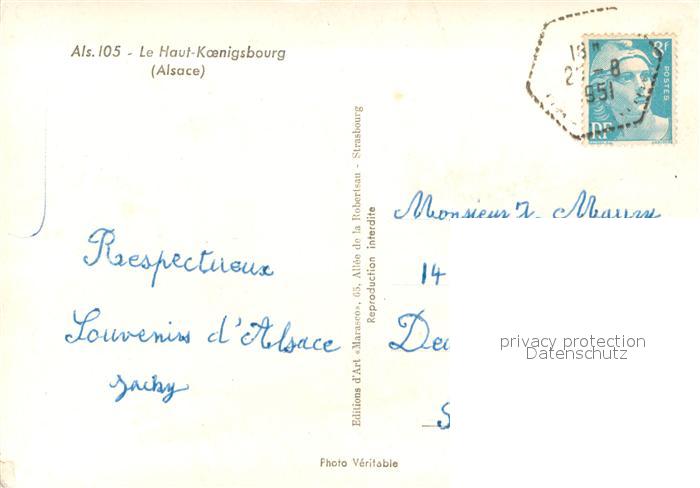 Als. 105 - Le Haut-Kœnigsbourg
(Alsace)
18H
8
951
8F
POSTES
RF
Editions d'Art «Marasco», 65, Allée de la Robertsau - Strasbourg
Reproduction interdite
Monsieur
14
Respectueux
Souvenirs d'Alsace
Jacky
privacy protection
Datenschutz
Photo Véritable